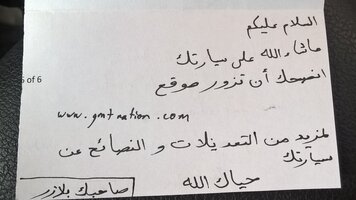 السلام عليكم
ماشاء الله على سيارتك
انصحك أن تزور موقع
5 of 6
www.gmtnation.com
لمزيد من التعديلات و النصائح عن
سيارتك
حياك الله
صاحبك بلازر